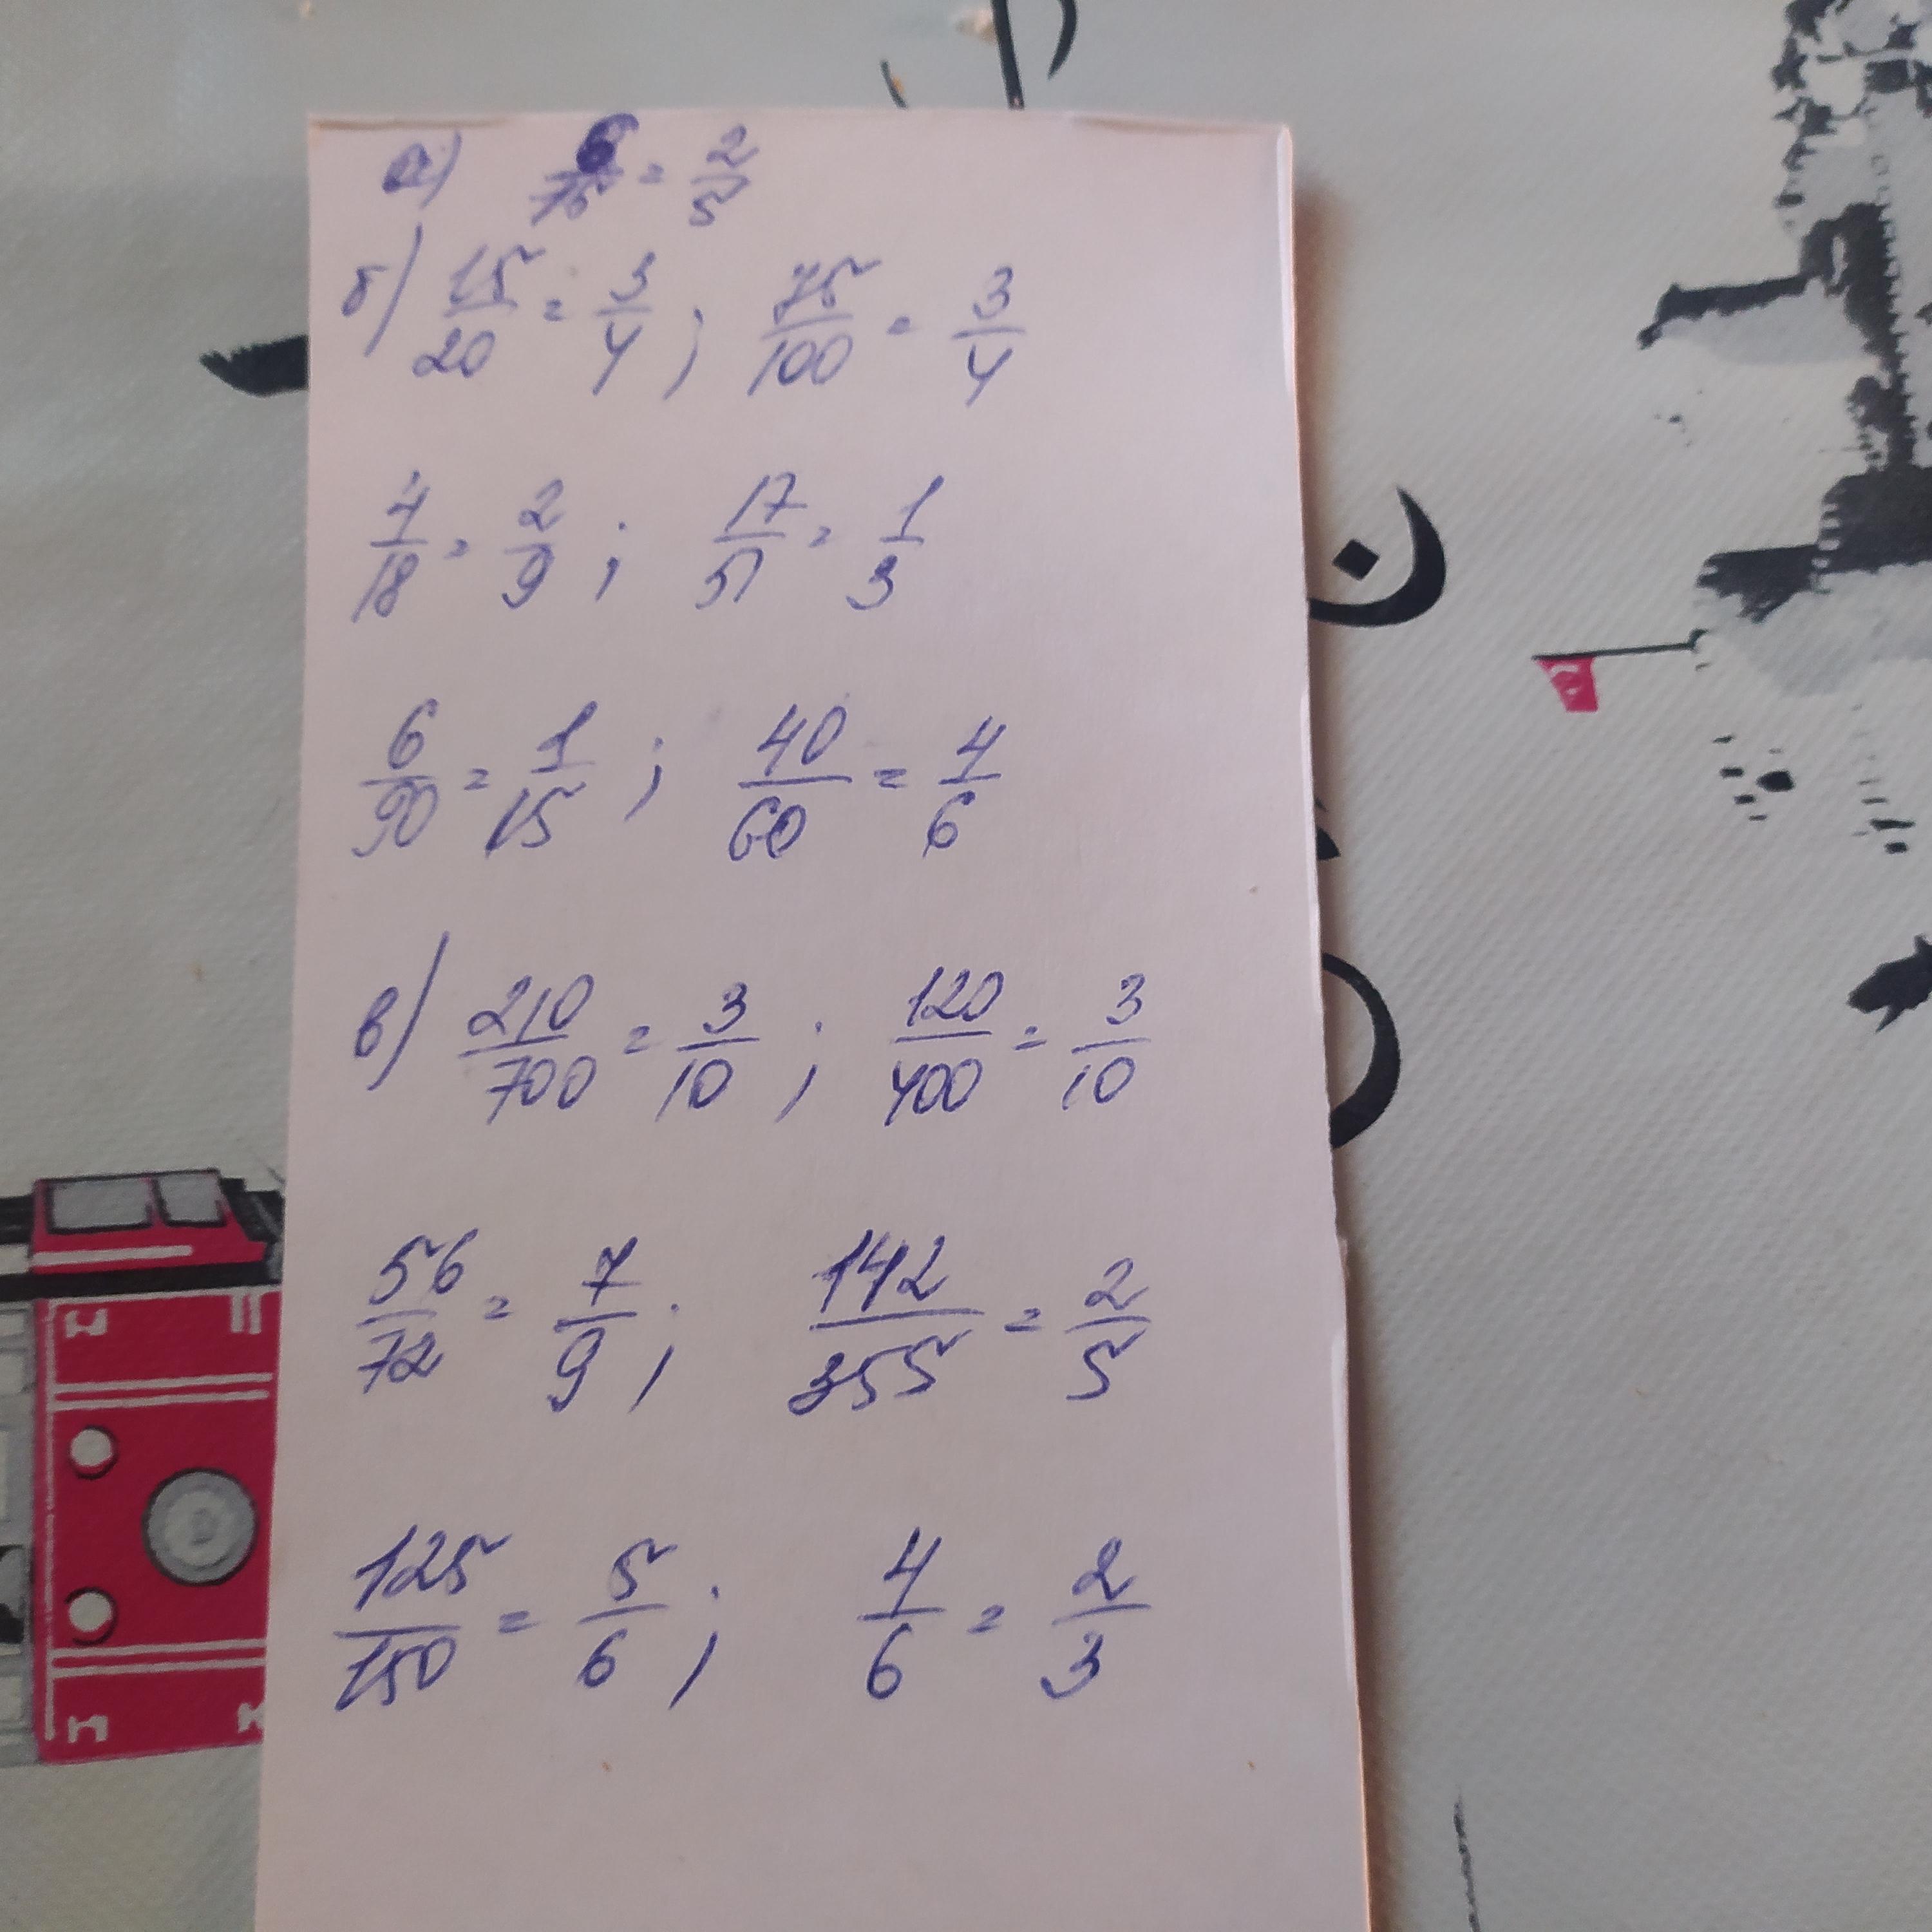 а) 6/15 = 2/5
б) 15/20 = 3/4 ; 75/100 = 3/4
4/18 = 2/9 ; 17/51 = 1/3
6/90 = 1/15 ; 40/60 = 4/6
в) 210/700 = 3/10 ; 120/400 = 3/10
56/72 = 7/9 ; 142/355 = 2/5
125/150 = 5/6 ; 4/6 = 2/3